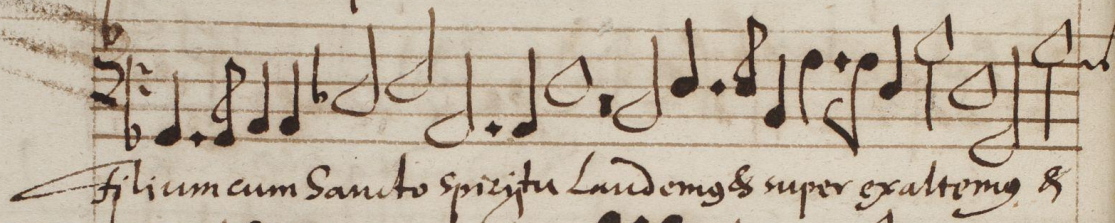 filium cum Sancto spiritu Laudemꝰ & super exaltemꝰ &